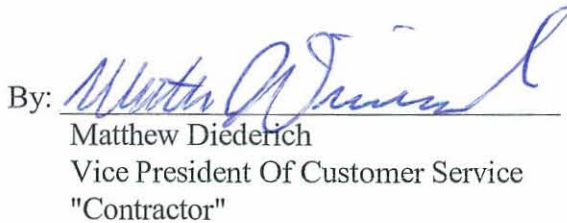 By:
Matthew Diederich
Vice President Of Customer Service
"Contractor"